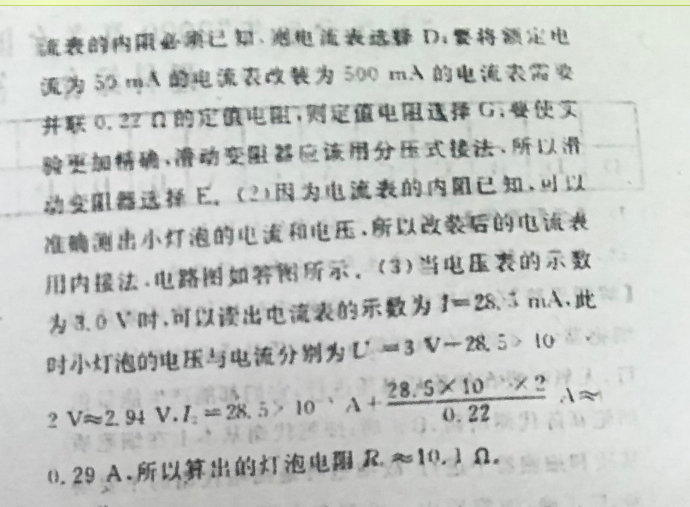 流表的内阻必须已知,则电流表选择 D;要将额定电
流为 50 mA 的电流表改装为 500 mA 的电流表需要
并联 0.22 Ω 的定值电阻,则定值电阻选择 G;要使实
验更加精确,滑动变阻器应该用分压式接法,所以滑
动变阻器选择 E. (2)因为电流表的内阻已知,可以
准确测出小灯泡的电流和电压,所以改装后的电流表
用内接法,电路图如答图所示. (3)当电压表的示数
为 3.0 V 时,可以读出电流表的示数为 I=28.5 mA,此
时小灯泡的电压与电流分别为 U =3 V-28.5× 10 ×
2 V≈2.94 V,I =28.5× 10 A+ 28.5×10 ×2 / 0.22 A≈
0.29 A,所以算出的灯泡电阻 R ≈10.1 Ω.